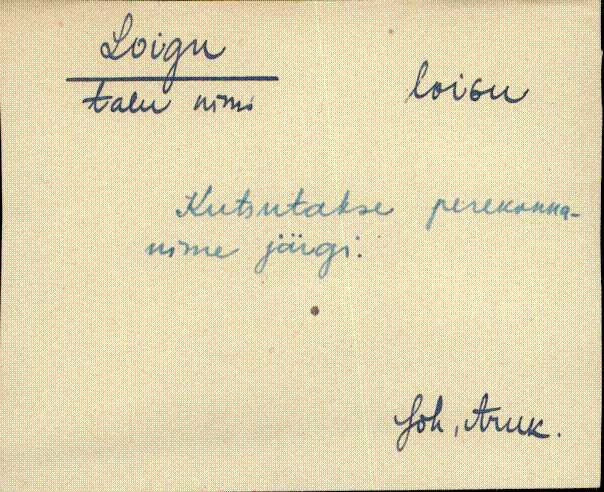 Loigu
talu nimi
loiGu
Kutsutakse perekonna-
nime järgi.
Joh, Aruk.